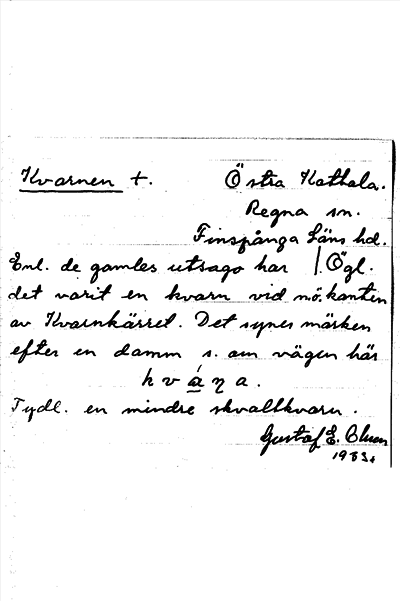 Kvarnen †. Östra Kathala.
Regna sn.
Finspånga Läns hd.
Enl. de gamles utsago har | Ögl.
det varit en kvarn vid nö. kanten
av Kvarnkärret. Det synes märken
efter en damm s. om vägen här
Tydl. en mindre skvaltkvarn.
Gustaf E.